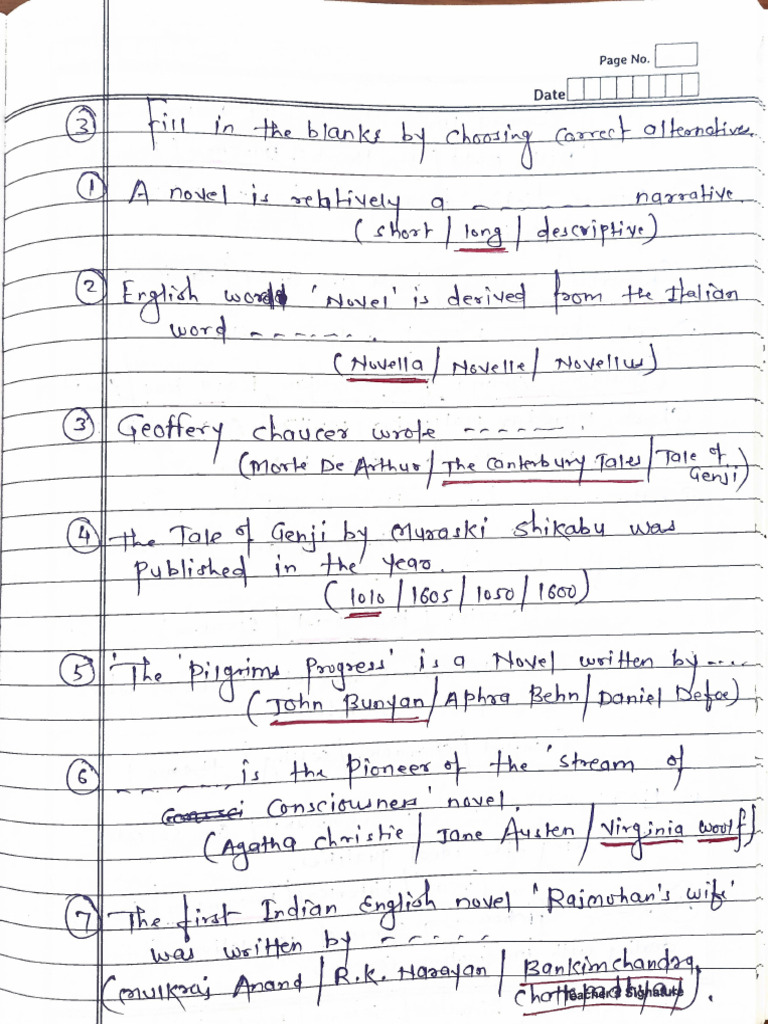 Page No.
Date
③ Fill in the blanks by choosing correct alternative.
① A novel is relatively a ------- narrative.
(short / long / descriptive)
② English word 'Novel' is derived from the Italian
word ------.
(Novella / Novelle / Novellus)
③ Geoffery chaucer wrote ------.
(Morte De Arthur / The Canterbury Tales / Tale of
Genji)
④ the Tale of Genji by Muraski Shikabu was
published in the year.
(1010 / 1605 / 1050 / 1600)
⑤ 'The 'Pilgrims Progress' is a Novel written by ----
(John Bunyan / Aphra Behn / Daniel Defoe)
⑥ ------- is the Pioneer of the 'stream of
Consciousness' novel.
(Agatha Christie / Jane Austen / Virginia Woolf)
⑦ The first Indian English novel 'Rajmohan's wife'
was written by -----
(Mulkraj Anand / R.K. Narayan / Bankimchandra
Chattopadhyay).
Teacher's Signature